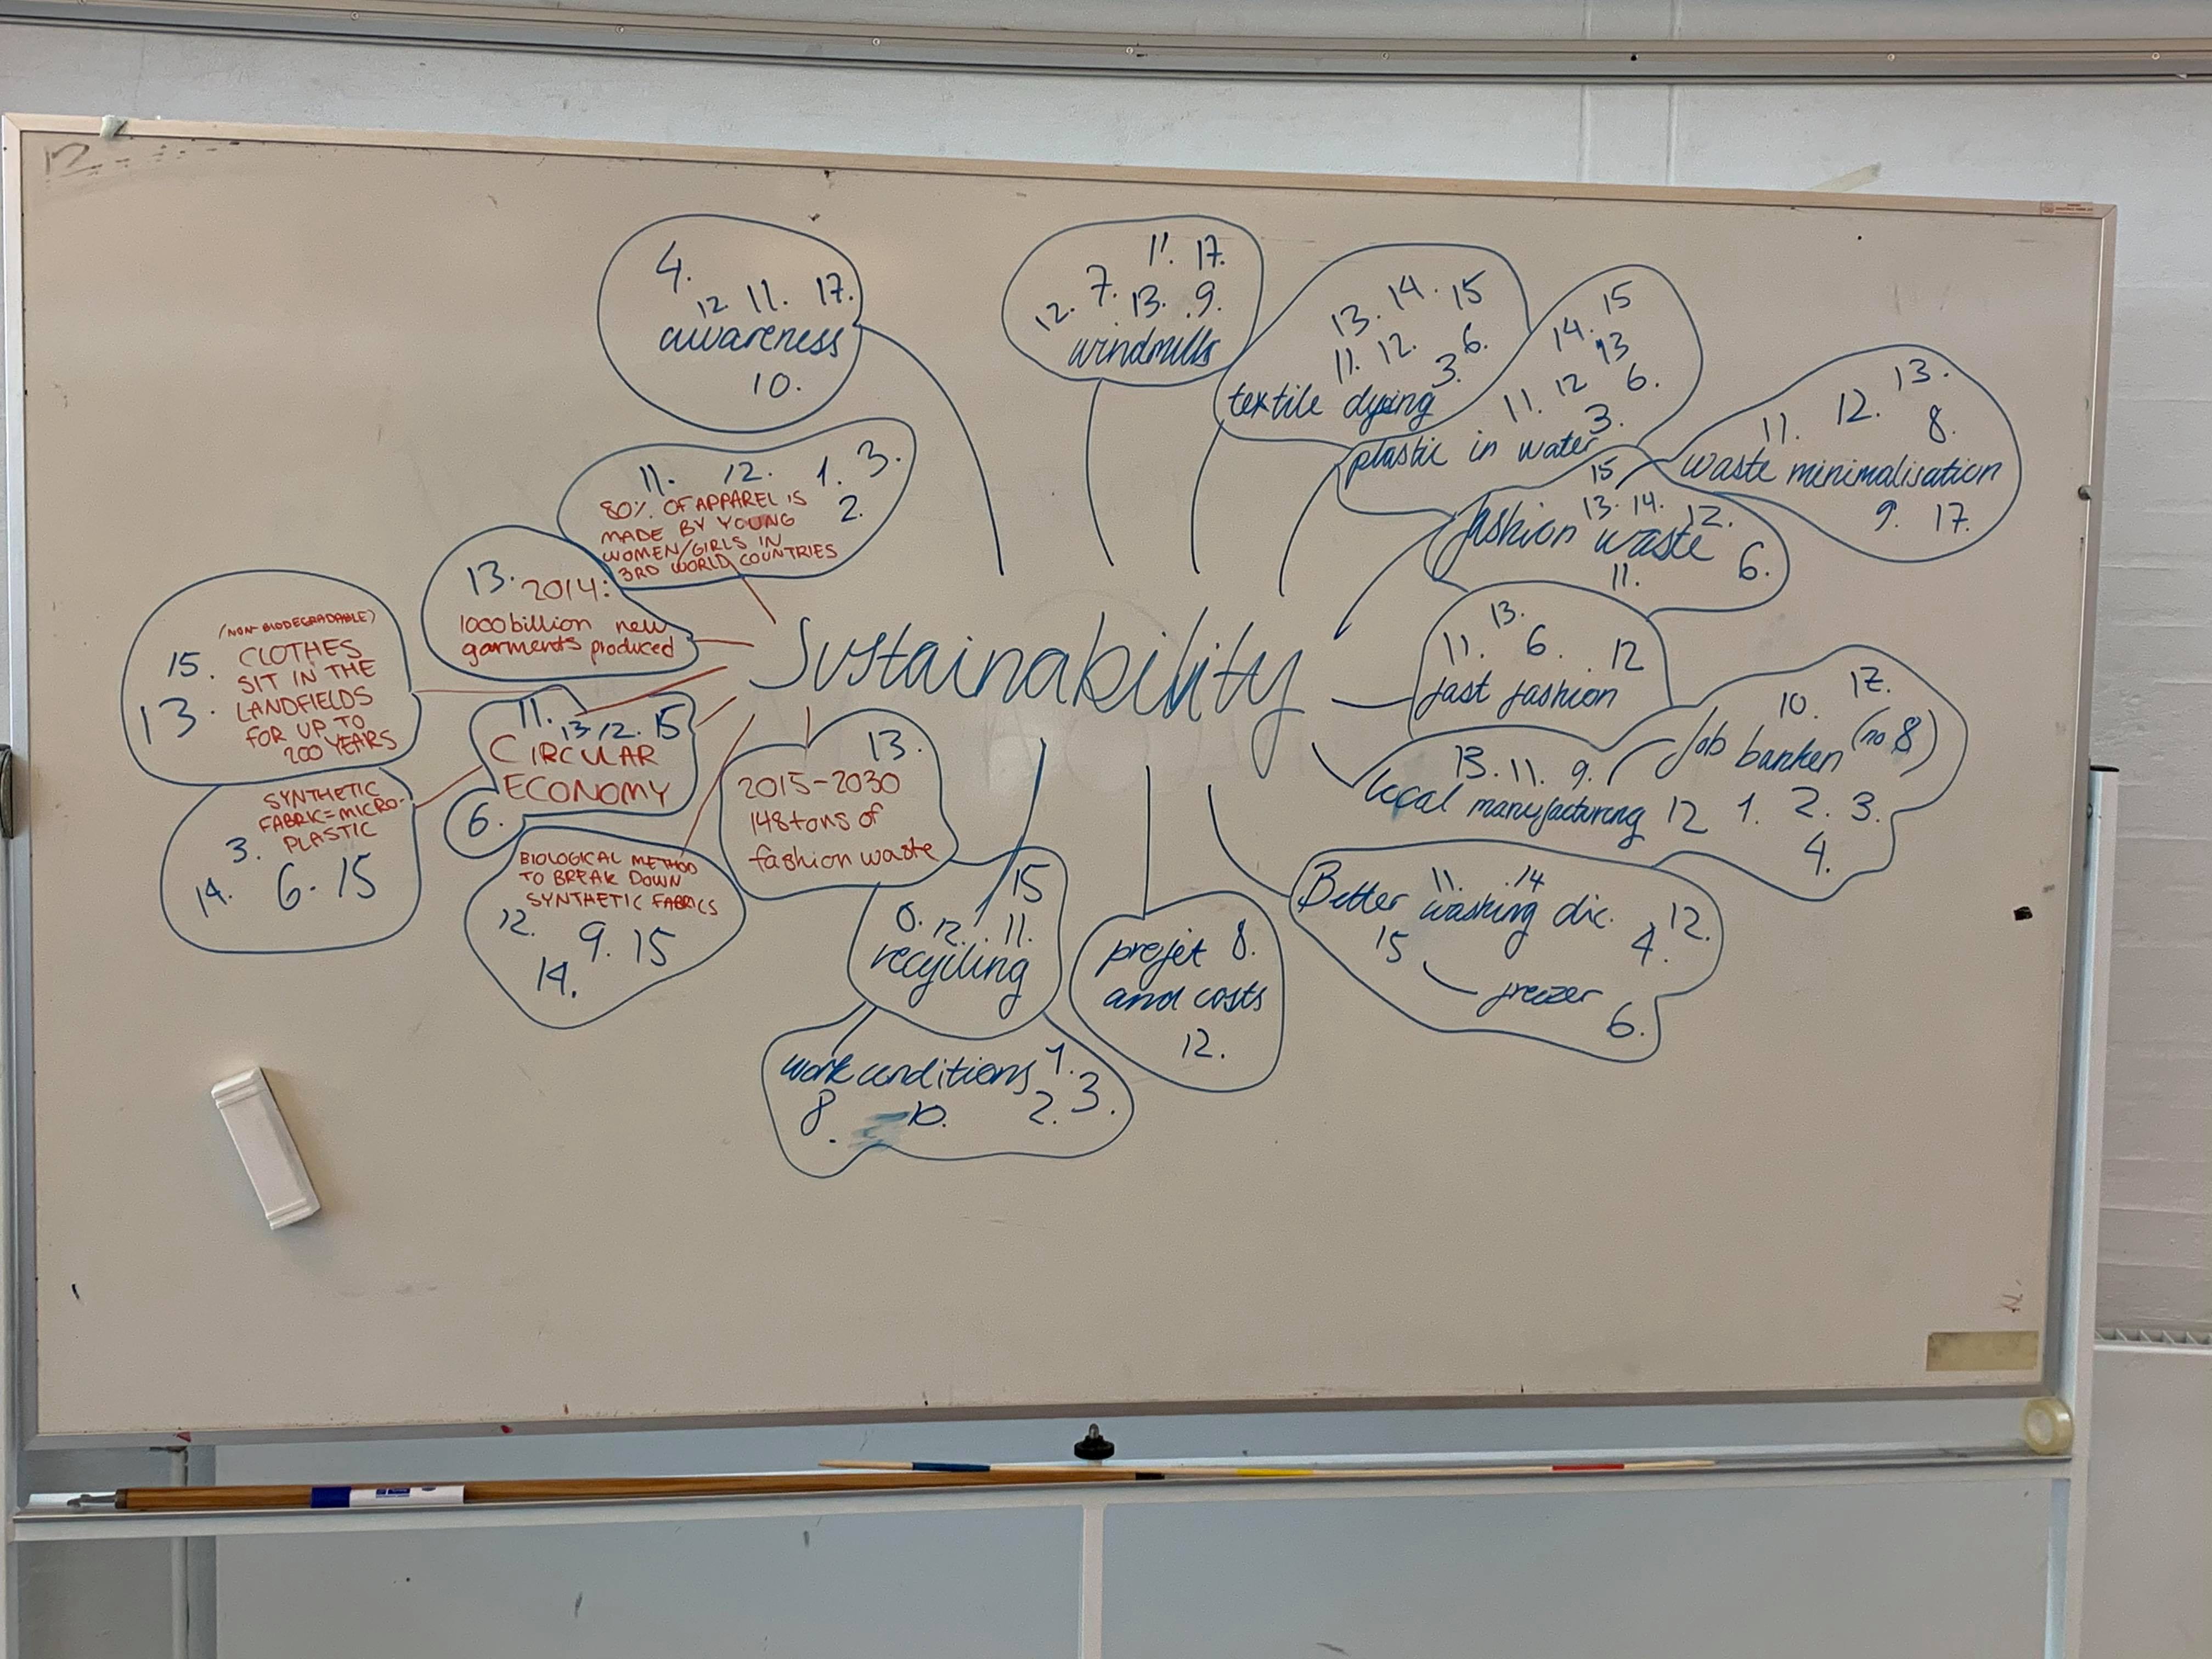 4.
12. 11. 17.
awareness
10.
11. 17.
12. 7. 13. 9.
windmills
13. 14. 15
11. 12. 6.
3.
textile dyeing
15
14. 13
11. 12 6.
3.
plastic in water
13.
11. 12. 8.
waste minimalisation
9. 17.
15
13. 14. 12.
fashion waste 6.
11.
13.
11. 6. 12
fast fashion
10. 17.
Job banken (no 8)
13. 11. 9.
local manufacturing 12 1. 2. 3.
4.
11. 14
Better washing dic. 12.
15 4.
freezer
6.
11. 12. 1. 3.
80% OF APPAREL IS
MADE BY YOUNG 2.
WOMEN/GIRLS IN
3RD WORLD COUNTRIES
13. 2014:
1000 billion new
garments produced
(NON BIODEGRADABLE)
15. CLOTHES
SIT IN THE
13. LANDFIELDS
FOR UP TO
200 YEARS
SYNTHETIC
FABRIC=MICRO-
PLASTIC
3.
14. 6. 15
Sustainability
11. 13 12. 15
CIRCULAR
ECONOMY
6.
BIOLOGICAL METHOD
TO BREAK DOWN
SYNTHETIC FABRICS
12. 9. 15
14.
13.
2015-2030
148 tons of
fashion waste
15
12. 11.
recycling
projet 8.
and costs
12.
work conditions 1.
8. 10. 2. 3.